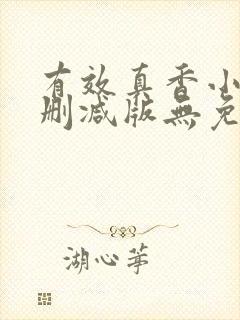 有效真香小
删减版無免
湖心茅